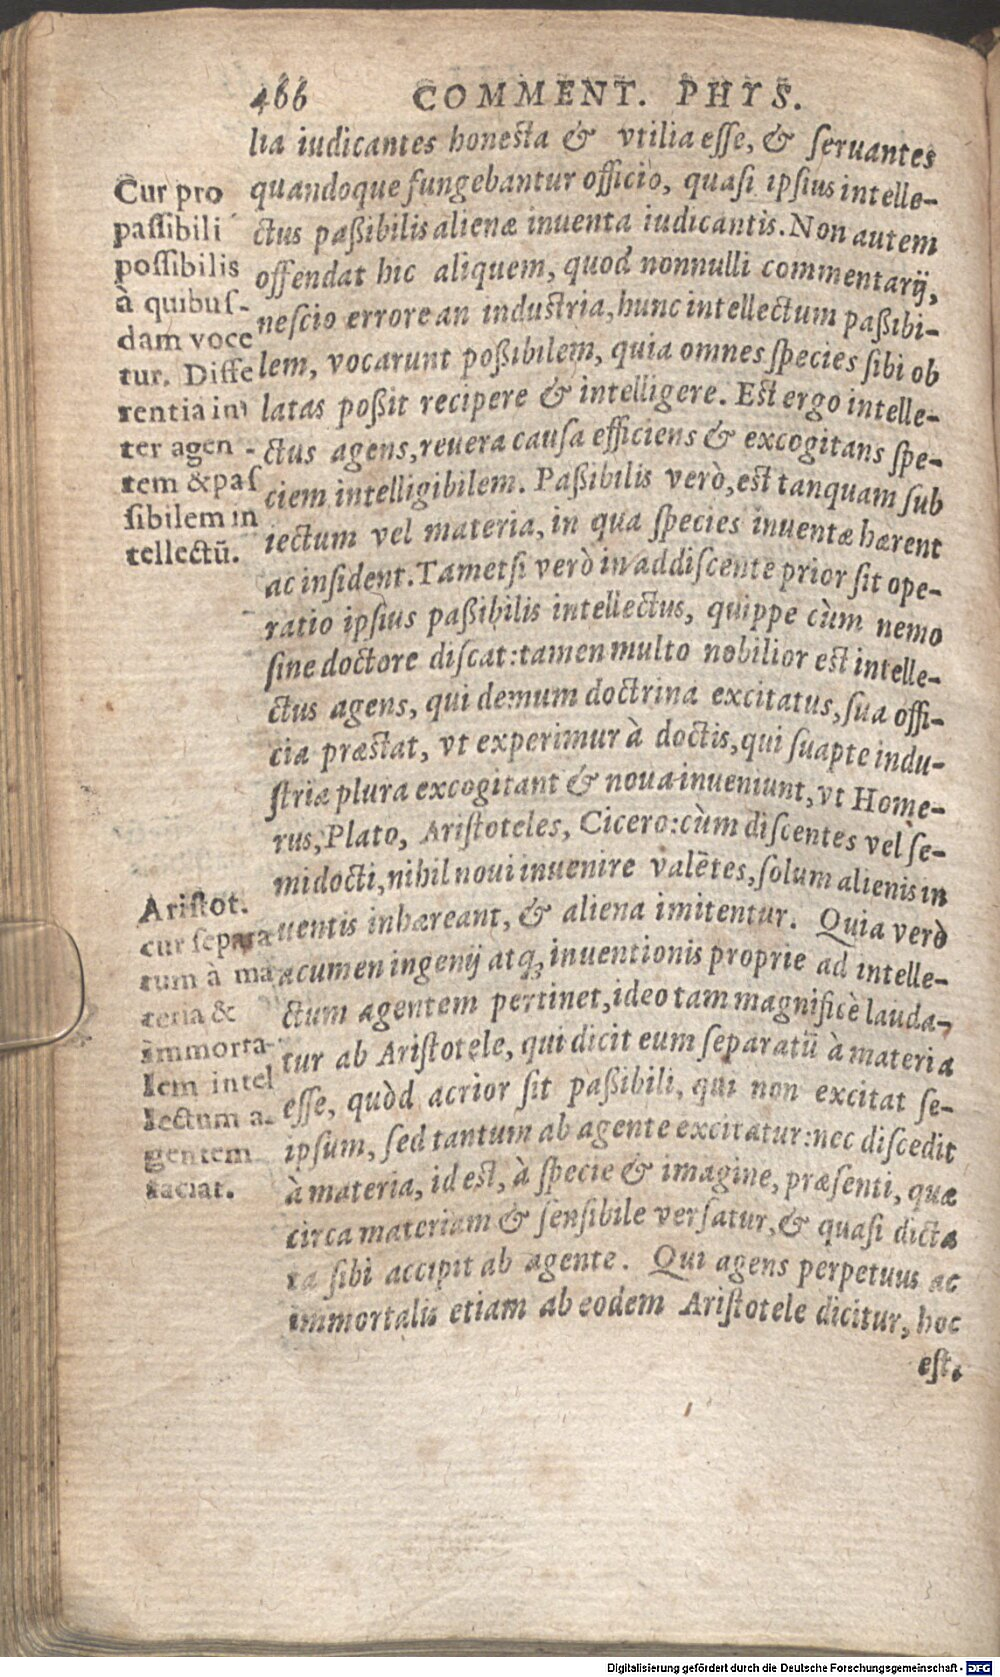 466 COMMENT. PHYS.
lia iudicantes honesta & vtilia esse, & seruantes
quandoque fungebantur officio, quasi ipsius intelle-
ctus paßibilis alienæ inuenta iudicantis. Non autem
offendat hic aliquem, quod nonnulli commentarij,
nescio errore an industria, hunc intellectum paßibi-
lem, vocarunt poßibilem, quia omnes species sibi ob
latas poßit recipere & intelligere. Est ergo intelle-
ctus agens, reuera causa efficiens & excogitans spe-
ciem intelligibilem. Paßibilis verò, est tanquam sub
iectum vel materia, in qua species inuentæ hærent
ac insident. Tametsi verò in addiscente prior sit ope-
ratio ipsius paßibilis intellectus, quippe cùm nemo
sine doctore discat: tamen multo nobilior est intelle-
ctus agens, qui demum doctrina excitatus, sua offi-
cia præstat, vt experimur à doctis, qui suapte indu-
stria plura excogitant & noua inueniunt, vt Home-
rus, Plato, Aristoteles, Cicero: cùm discentes vel se-
midocti, nihil noui inuenire valētes, solum alienis in
uentis inhæreant, & aliena imitentur. Quia verò
acumen ingenij atq; inuentionis proprie ad intelle-
ctum agentem pertinet, ideo tam magnificè lauda-
tur ab Aristotele, qui dicit eum separatū à materia
esse, quòd acrior sit paßibili, qui non excitat se-
ipsum, sed tantum ab agente excitatur: nec discedit
à materia, id est, à specie & imagine, præsenti, quæ
circa materiam & sensibile versatur, & quasi dicta
ta sibi accipit ab agente. Qui agens perpetuus ac
immortalis etiam ab eodem Aristotele dicitur, hoc
est,
Cur pro
passibili
possibilis
à quibus-
dam voce
tur. Diffe
rentia in
ter agen-
tem & pas
sibilem in
tellectū.
Aristot.
cur separa
tum à ma
teria &
immorta-
lem intel
lectum a-
gentem
faciat.
Digitalisierung gefördert durch die Deutsche Forschungsgemeinschaft - DFG